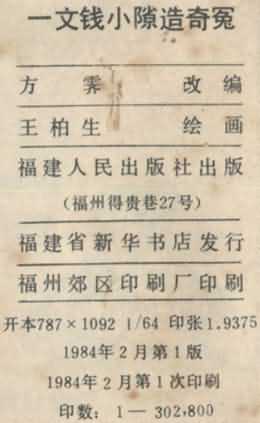 一文钱小隙造奇冤
方霁 改编
王柏生 绘画
福建人民出版社出版
(福州得贵巷27号)
福建省新华书店发行
福州郊区印刷厂印刷
开本787×1092 1/64 印张1.9375
1984年2月第1版
1984年2月第1次印刷
印数：1—302,800